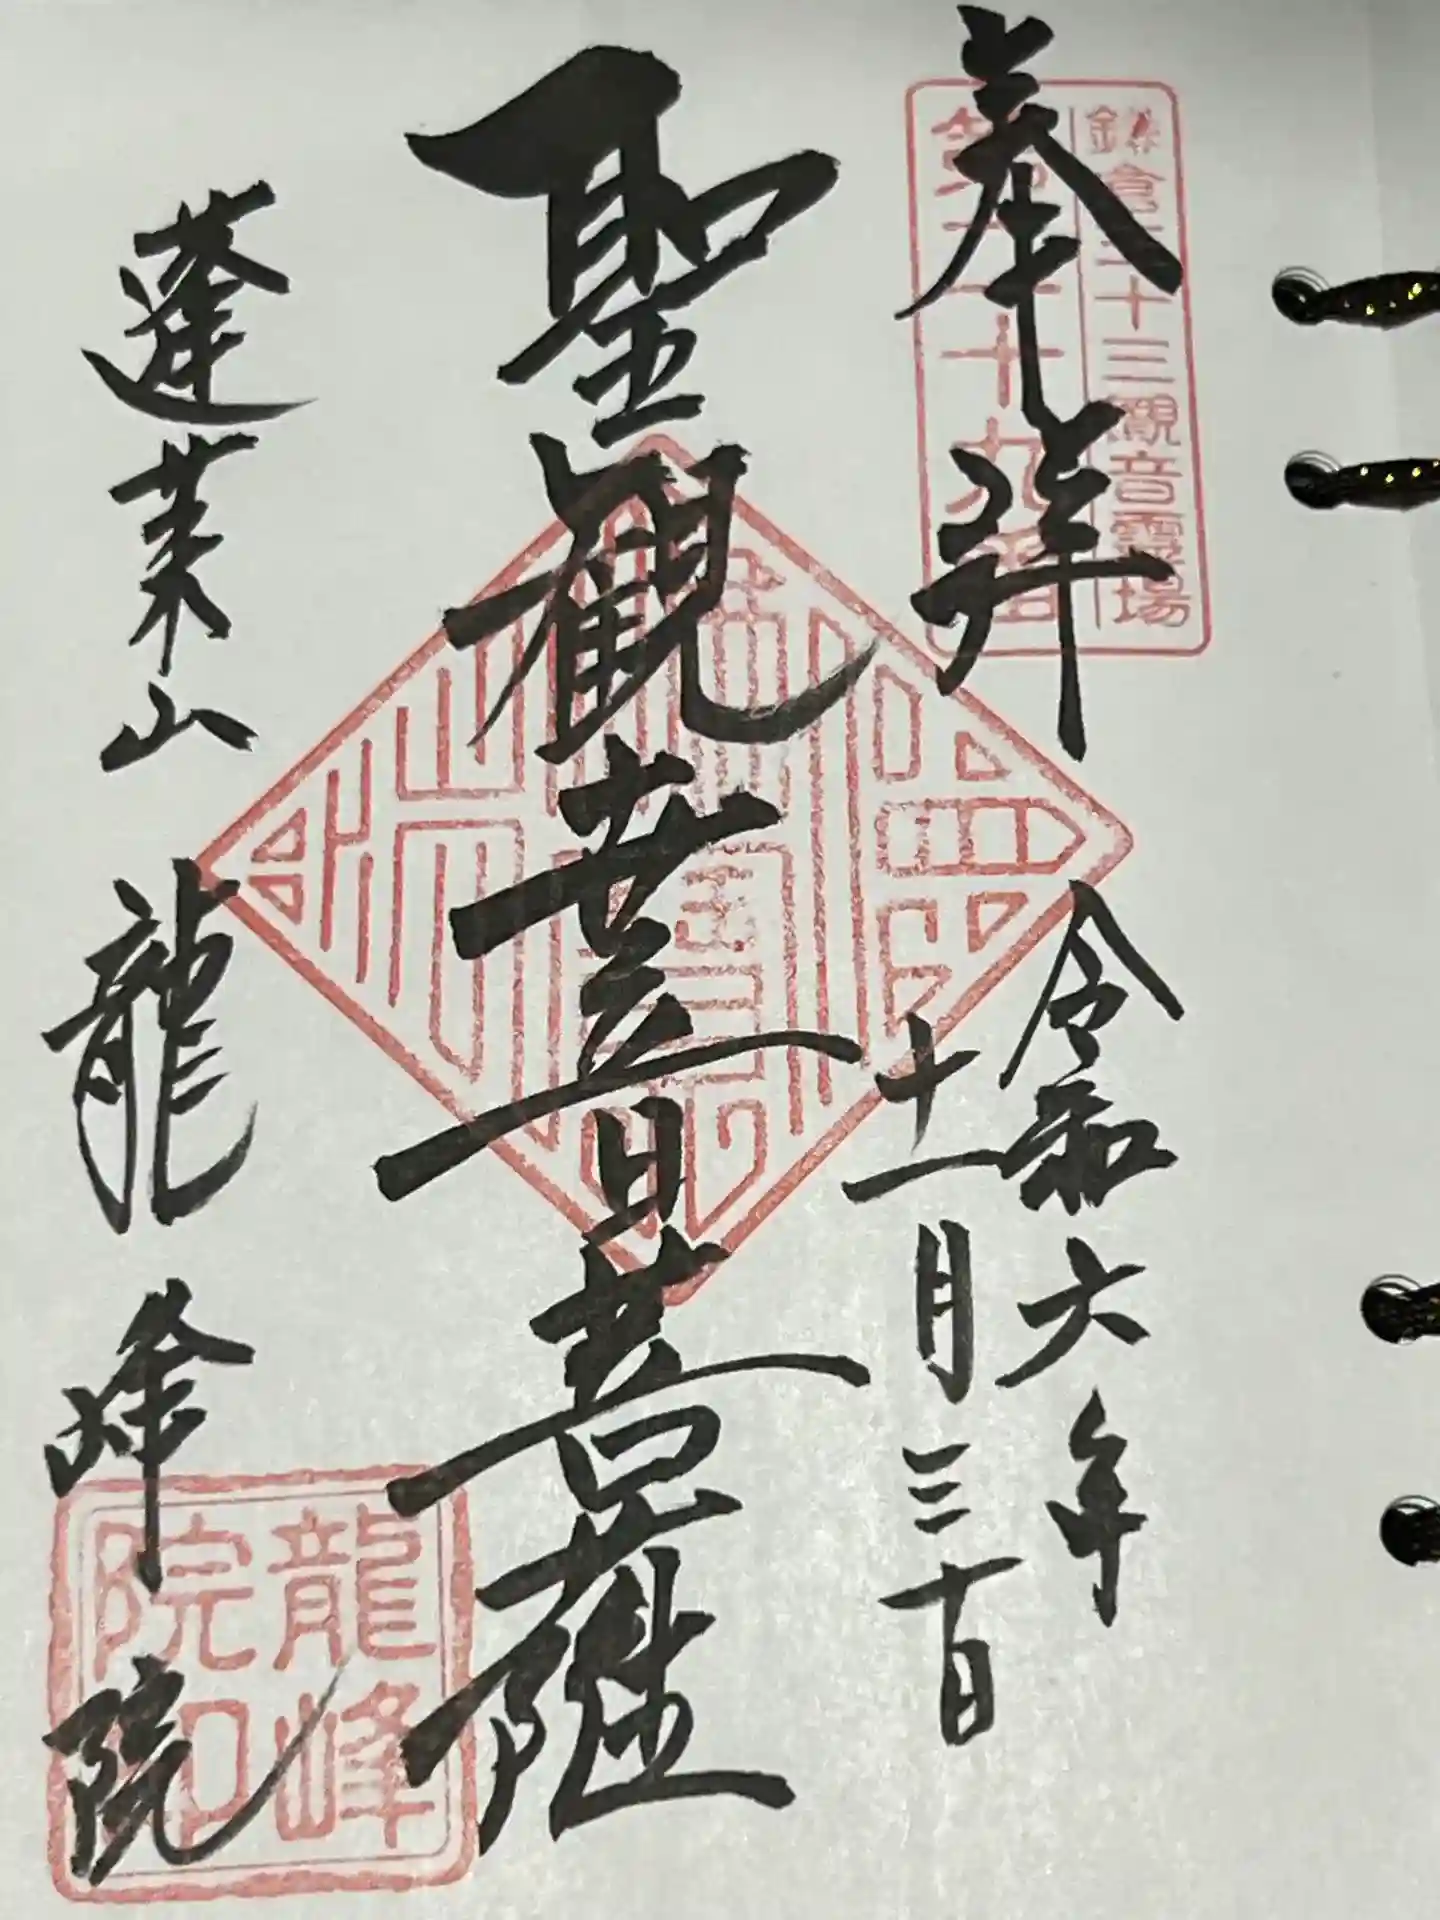 鎌倉三十三観音霊場
第二十九番
奉拝
令和六年
十一月三十日
聖観世音菩薩
蓬莱山
龍峰院
龍峰院印